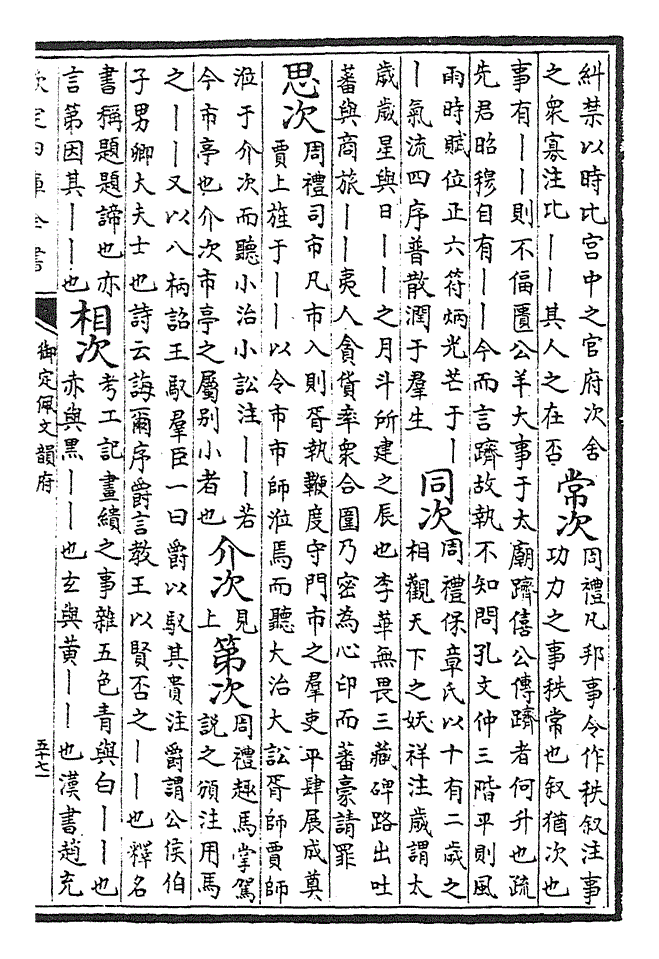 糾禁以時比宫中之官府次舍
之衆寡注比丨丨其人之在否
常次
周禮凡邦事令作秩叙注事
功力之事秩常也叙猶次也
事有丨丨則不偪匱公羊大事于太廟躋僖公傳躋者何升也疏
先君昭穆自有丨丨今而言躋故執不知問孔文仲三階平則風
雨時賦位正六符炳光芒于丨
丨氣流四序普散潤于羣生
同次
周禮保章氏以十有二歲之
相觀天下之妖祥注歲謂太
歲歲星與日丨丨之月斗所建之辰也李華無畏三藏碑路出吐
蕃與商旅丨丨夷人貪貨率衆合圍乃密為心印而蕃豪請罪
思次
周禮司市凡市入則胥執鞭度守門市之羣吏平肆展成奠
賈上旌于丨丨以令市市師涖焉而聽大治大訟胥師賈師
涖于介次而聽小治小訟注丨丨若
今市亭也介次市亭之屬别小者也
介次
見
上
第次
周禮趣馬掌駕
說之頒注用馬
之丨丨又以八柄詔王馭羣臣一曰爵以馭其貴注爵謂公侯伯
子男卿大夫士也詩云誨爾序爵言教王以賢否之丨丨也釋名
書稱題題諦也亦
言第因其丨丨也
相次
考工記畫繢之事雜五色青與白丨丨也
赤與黑丨丨也玄與黄丨丨也漢書趙充
欽定四庫全書
御定佩文韻府
五十七